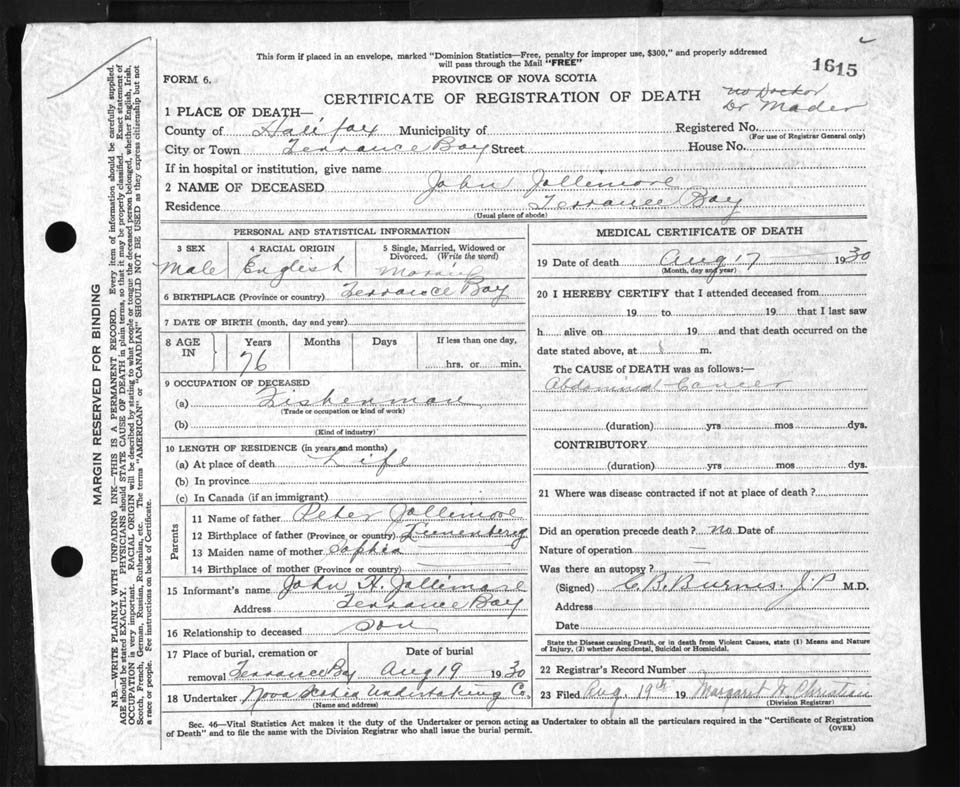 This form if placed in an envelope, marked "Dominion Statistics—Free, penalty for improper use, $300," and properly addressed
will pass through the Mail "FREE"
1615
FORM 6.
PROVINCE OF NOVA SCOTIA
CERTIFICATE OF REGISTRATION OF DEATH
no Doctor
Dr Mader
1 PLACE OF DEATH—
County of Halifax Municipality of
Registered No.
(For use of Registrar General only)
City or Town Terrance Bay Street
House No.
If in hospital or institution, give name
2 NAME OF DECEASED John Jollimore
Residence Terrance Bay
(Usual place of abode)
PERSONAL AND STATISTICAL INFORMATION
3 SEX
Male
4 RACIAL ORIGIN
English
5 Single, Married, Widowed or
Divorced. (Write the word)
6 BIRTHPLACE (Province or country) Terrance Bay
7 DATE OF BIRTH (month, day and year)
8 AGE
IN
Years
76
Months
Days
If less than one day,
hrs. or min.
9 OCCUPATION OF DECEASED
(a) Fisherman
(Trade or occupation or kind of work)
(b)
(Kind of industry)
10 LENGTH OF RESIDENCE (in years and months)
(a) At place of death Life
(b) In province
(c) In Canada (if an immigrant)
Parents
11 Name of father Peter Jollimore
12 Birthplace of father (Province or country) Lunenberg
13 Maiden name of mother Sophia
14 Birthplace of mother (Province or country)
15 Informant's name John H. Jollimore
Address Terrance Bay
16 Relationship to deceased son
17 Place of burial, cremation or
removal Terrance Bay
Date of burial
Aug 19 1930
18 Undertaker Nova Scotia Undertaking Co.
(Name and address)
MEDICAL CERTIFICATE OF DEATH
19 Date of death Aug 17 1930
(Month, day and year)
20 I HEREBY CERTIFY that I attended deceased from
19 to 19 that I last saw
h alive on 19 and that death occurred on the
date stated above, at m.
The CAUSE of DEATH was as follows:—
Abdominal Cancer
(duration) yrs mos dys.
CONTRIBUTORY
(duration) yrs mos dys.
21 Where was disease contracted if not at place of death?
Did an operation precede death? no Date of
Nature of operation —
Was there an autopsy? —
(Signed) C. B. Burns. J.P M.D.
Address
Date
State the Disease causing Death, or in death from Violent Causes, state (1) Means and Nature
of Injury, (2) whether Accidental, Suicidal or Homicidal.
22 Registrar's Record Number
23 Filed Aug. 19th 19 Margaret H. Christian
(Division Registrar)
Sec. 46—Vital Statistics Act makes it the duty of the Undertaker or person acting as Undertaker to obtain all the particulars required in the "Certificate of Registration
of Death" and to file the same with the Division Registrar who shall issue the burial permit.
(OVER)
MARGIN RESERVED FOR BINDING
N.B.—WRITE PLAINLY WITH UNFADING INK—THIS IS A PERMANENT RECORD. Every item of information should be carefully supplied.
AGE should be stated EXACTLY. PHYSICIANS should STATE CAUSE OF DEATH in plain terms, so that it may be properly classified. Exact statement of
OCCUPATION is very important. RACIAL ORIGIN will be described by stating to what people or tongue the deceased person belonged, whether English, Irish,
Scotch, French, German, Russian, Ruthenian, etc. The terms "AMERICAN" or "CANADIAN" SHOULD NOT BE USED as they express citizenship but not
a race or people. See instructions on back of Certificate.